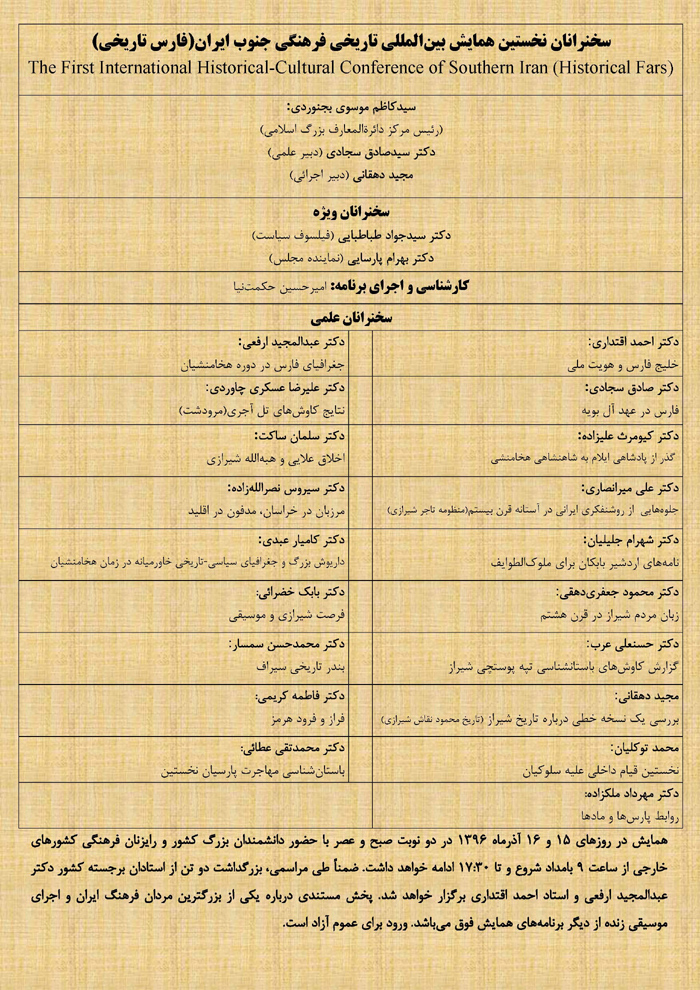 سخنرانان نخستین همایش بین‌المللی تاریخی فرهنگی جنوب ایران(فارس تاریخی)
The First International Historical-Cultural Conference of Southern Iran (Historical Fars)
سیدکاظم موسوی بجنوردی:
(رئیس مرکز دائرةالمعارف بزرگ اسلامی)
دکتر سیدصادق سجادی (دبیر علمی)
مجید دهقانی (دبیر اجرائی)
سخنرانان ویژه
دکتر سیدجواد طباطبایی (فیلسوف سیاست)
دکتر بهرام پارسایی (نماینده مجلس)
کارشناسی و اجرای برنامه: امیرحسین حکمت‌نیا
سخنرانان علمی
دکتر احمد اقتداری:
خلیج فارس و هویت ملی
دکتر عبدالمجید ارفعی:
جغرافیای فارس در دوره هخامنشیان
دکتر صادق سجادی:
فارس در عهد آل بویه
دکتر علیرضا عسکری چاوردی:
نتایج کاوش‌های تل آجری(مرودشت)
دکتر کیومرث علیزاده:
گذر از پادشاهی ایلام به شاهنشاهی هخامنشی
دکتر سلمان ساکت:
اخلاق علایی و هبه‌الله شیرازی
دکتر علی میرانصاری:
جلوه‌هایی از روشنفکری ایرانی در آستانه قرن بیستم(منظومه تاجر شیرازی)
دکتر سیروس نصراله‌زاده:
مرزبان در خراسان، مدفون در اقلید
دکتر شهرام جلیلیان:
نامه‌های اردشیر بابکان برای ملوک‌الطوایف
دکتر کامیار عبدی:
داریوش بزرگ و جغرافیای سیاسی-تاریخی خاورمیانه در زمان هخامنشیان
دکتر محمود جعفری‌دهقی:
زبان مردم شیراز در قرن هشتم
دکتر بابک خضرائی:
فرصت شیرازی و موسیقی
دکتر حسنعلی عرب:
گزارش کاوش‌های باستانشناسی تپه پوستچی شیراز
دکتر محمدحسن سمسار:
بندر تاریخی سیراف
مجید دهقانی:
بررسی یک نسخه خطی درباره تاریخ شیراز (تاریخ محمود نقاش شیرازی)
دکتر فاطمه کریمی:
فراز و فرود هرمز
محمد توکلیان:
نخستین قیام داخلی علیه سلوکیان
دکتر محمدتقی عطائی:
باستان‌شناسی مهاجرت پارسیان نخستین
دکتر مهرداد ملکزاده:
روابط پارس‌ها و مادها
همایش در روزهای ۱۵ و ۱۶ آذرماه ۱۳۹۶ در دو نوبت صبح و عصر با حضور دانشمندان بزرگ کشور و رایزنان فرهنگی کشورهای
خارجی از ساعت ۹ بامداد شروع و تا ۱۷:۳۰ ادامه خواهد داشت. ضمناً طی مراسمی، بزرگداشت دو تن از استادان برجسته کشور دکتر
عبدالمجید ارفعی و استاد احمد اقتداری برگزار خواهد شد. پخش مستندی درباره یکی از بزرگترین مردان فرهنگ ایران و اجرای
موسیقی زنده از دیگر برنامه‌های همایش فوق می‌باشد. ورود برای عموم آزاد است.